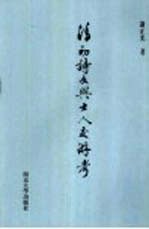 清初詩文與士人交遊考
謝正光 著
南京大學出版社